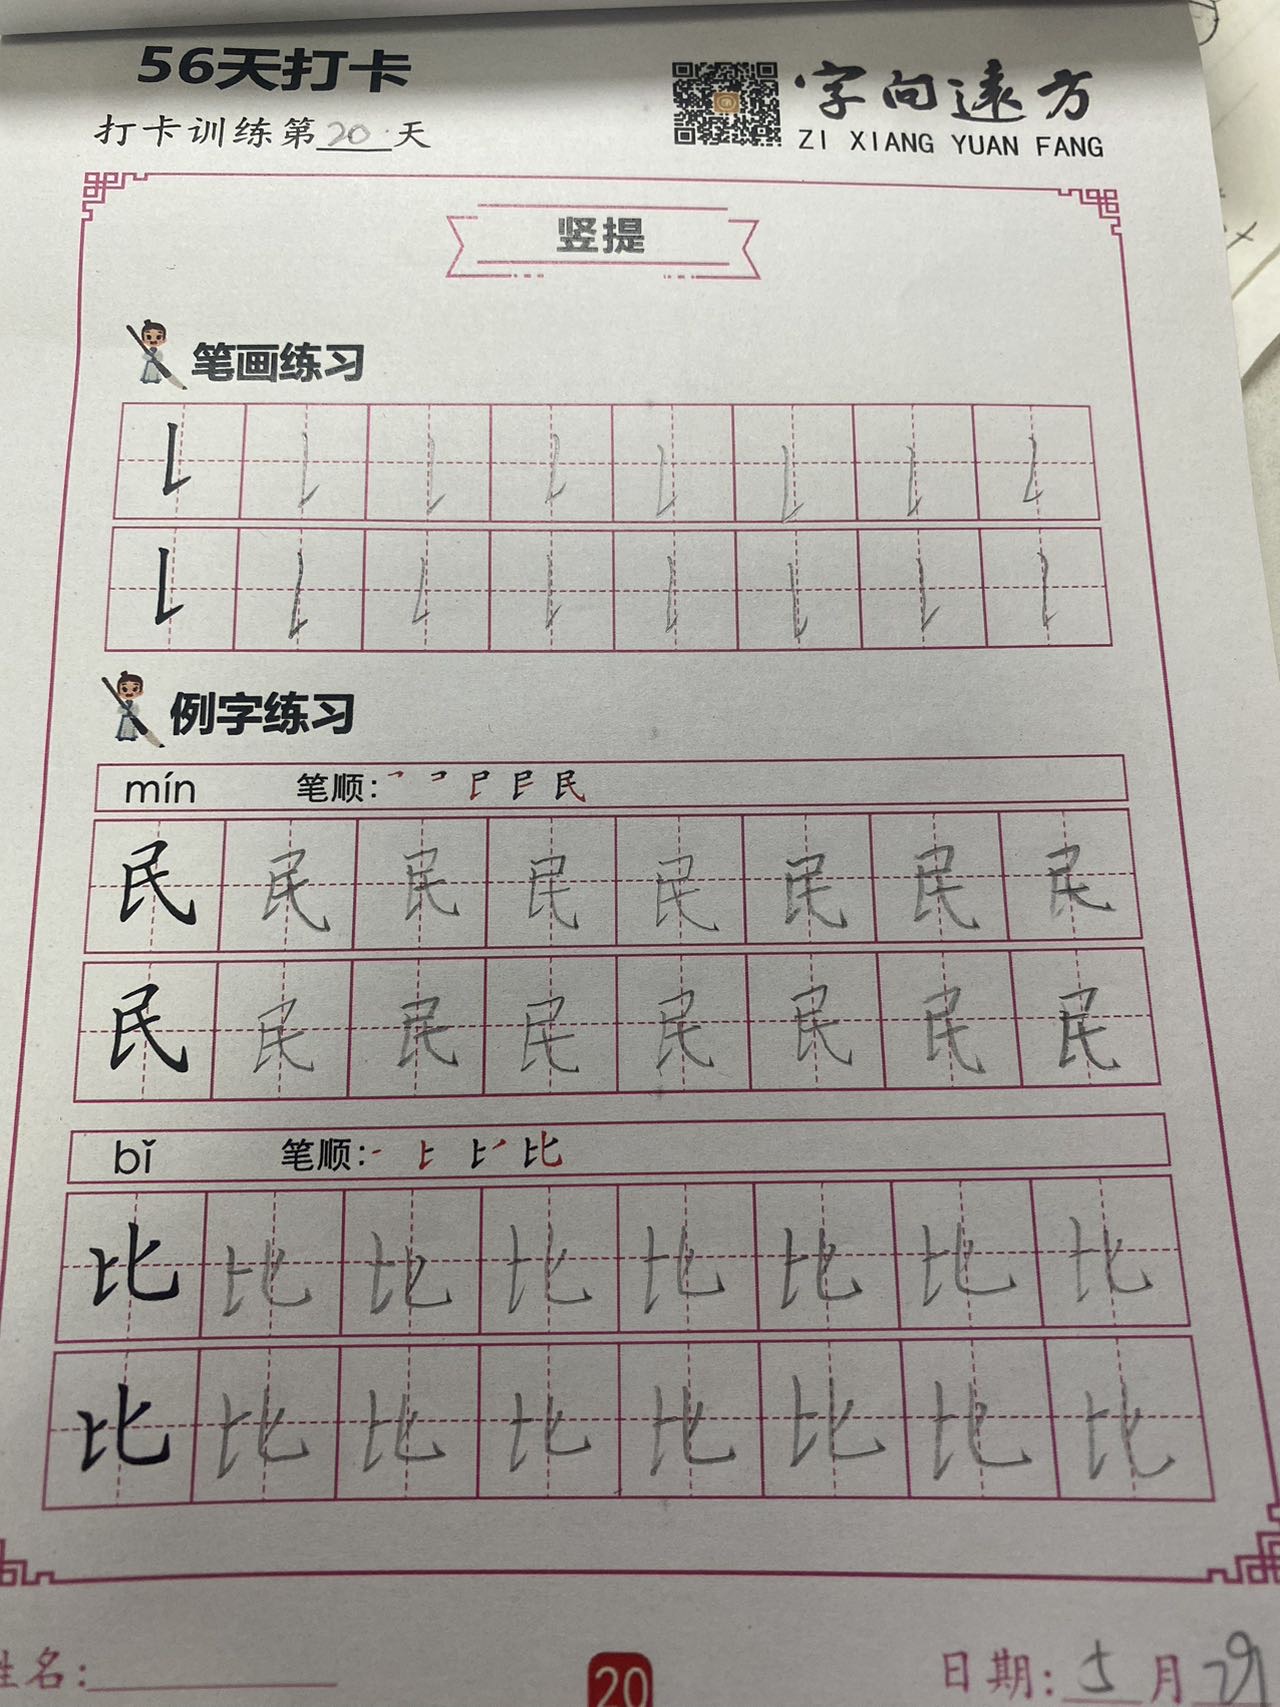 56天打卡
打卡训练第20天
字向远方
ZI XIANG YUAN FANG
竖提
笔画练习
㇙ ㇙ ㇙ ㇙ ㇙ ㇙ ㇙ ㇙
㇙ ㇙ ㇙ ㇙ ㇙ ㇙ ㇙ ㇙
例字练习
mín 笔顺:
民 民 民 民 民 民 民 民
民 民 民 民 民 民 民 民
bǐ 笔顺:
比 比 比 比 比 比 比 比
比 比 比 比 比 比 比 比
姓名:
20
日期: 5月29